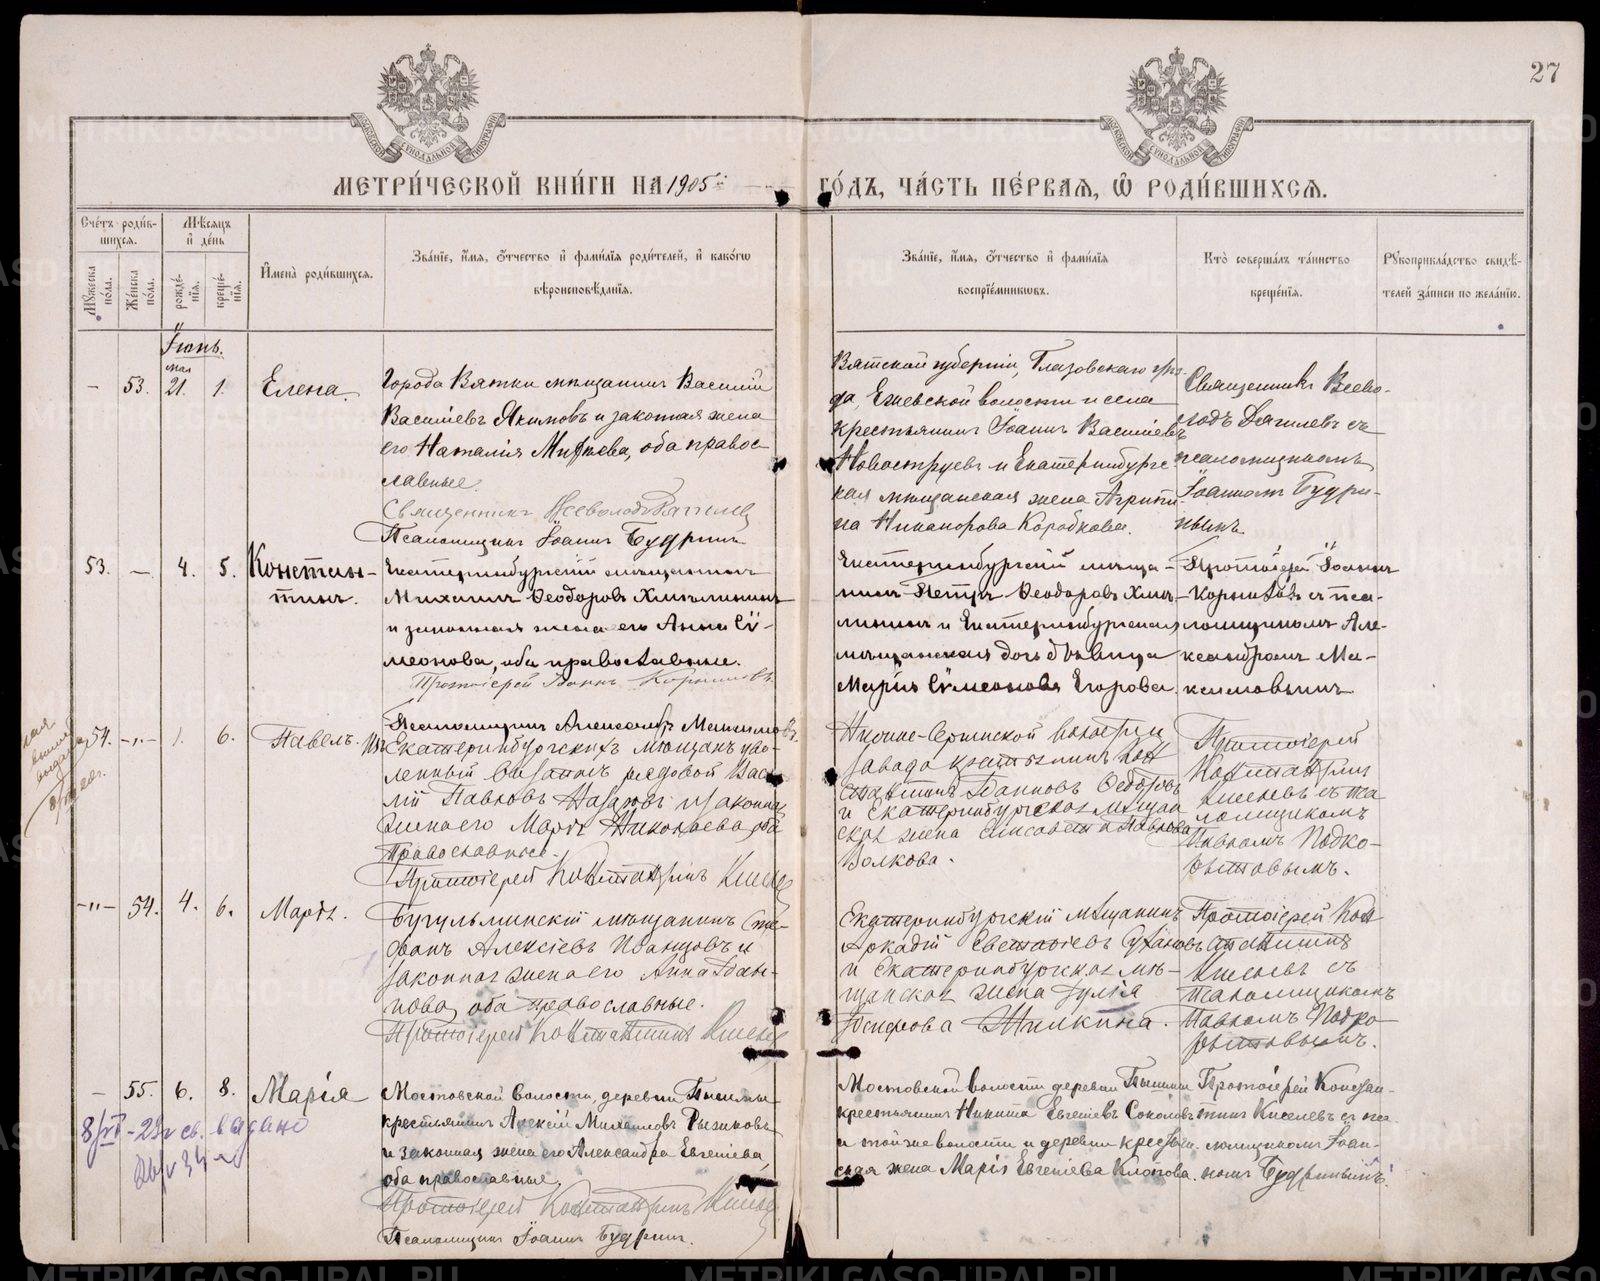 27
МЕТРИ́ЧЕСКОЙ КНИ́ГИ НА 1905й ГО́ДЪ, ЧА́СТЬ ПЕ́РВАЯ, Ѡ҆ РОДИ́ВШИХСЯ.
Сче́тъ роди́вшихся.
Мѣ́сяцъ и҆ де́нь
Мꙋ́жеска по́ла.
Же́нска по́ла.
рожде́нїя.
креще́нїя.
И҆мена̀ роди́вшихся.
Зва́нїе, и҆́мя, ѻ҆́тчество и҆ фами́лїя роди́телей, и҆ како́гѡ
вѣроисповѣ́данїя.
Зва́нїе, и҆́мя, ѻ҆́тчество и҆ фами́лїя
воспрїе́мникѡвъ.
Кто̀ соверша́лъ та́инство
креще́нїя.
Рꙋкоприкла́дство свидѣ́-
телей за́писи по жела́нїю.
Іюнь.
мая
– 53. 21. 1. Елена.
Города Вятки мѣщанинъ Василій
Васильевъ Якимовъ и законная жена
его Наталія, оба правос-
лавные.
Священникъ Всеволодъ
Псаломщикъ Іоаннъ Будринъ
Вятской губерніи, Глазовскаго уѣз-
да, Ежевской волости и села
крестьянинъ Іоаннъ Васильевъ
Новоструевъ и Екатеринбургс-
кая мѣщанская жена Агрипи-
на Никанорова Коробкова.
Священникъ Всево-
лодъ съ
псаломщикомъ
Іоанномъ Будри-
нымъ
53. – 4. 5. Констан-
тинъ.
Екатеринбургскій мѣщанинъ
Михаилъ Ѳеодоровъ Хмѣлининъ
и законная жена его Анна Сѵ-
меонова, оба православные.
Протоіерей Іоаннъ Корниловъ
Псаломщикъ Александръ Максимовъ
Екатеринбургскій мѣща-
нинъ Петръ Ѳеодоровъ Хмѣ-
лининъ и Екатеринбургская
мѣщанская дочь дѣвица
Марія Сѵмеонова Егорова
Протоіерей Іоаннъ
Корниловъ съ пса-
ломщикомъ Але-
ксандромъ Ма-
ксимовымъ
54. -„- 1. 6. Павелъ.
Изъ Екатеринбургскихъ мѣщанъ уво-
ленный въ запасъ рядовой Васи-
лій Павловъ Назаровъ и законная
жена его Марѳа Николаева, оба
православные.
Протоіерей Константинъ Киселевъ
Нижне-Сергинской волости и
завода крестьянинъ Кон-
стантинъ Іоанновъ Ѳедоровъ
и Екатеринбургская мѣщан-
ская жена Елисавета Павлова
Волкова.
Протоіерей
Константинъ
Киселевъ съ пса-
ломщикомъ
Павломъ Подко-
рытовымъ.
-„- 54. 4. 6. Марѳа.
Бугульминскій мѣщанинъ Сте-
фанъ Алексіевъ Иванцовъ и
законная жена его Анна Іоан-
нова, оба православные.
Протоіерей Константинъ Киселевъ
Екатеринбургскій мѣщанинъ
Аркадій Евстафіевъ Сухановъ
и Екатеринбургская мѣ-
щанская жена Іулія
Іосифова Жилкина.
Протоіерей Кон-
стантинъ
Киселевъ съ
псаломщикомъ
Павломъ Подко-
рытовымъ.
– 55. 6. 8. Марія
8/VI – 22г св. выдано
Мостовской волости, деревни Пышмы
крестьянинъ Алексій Михаиловъ Рызиковъ
и законная жена его Александра Евгеніева,
оба православные.
Протоіерей Константинъ Киселевъ
Псаломщикъ Іоаннъ Будринъ.
Мостовской волости деревни Пышмы
крестьянинъ Никита Евгеніевъ Соколовъ
и той же волости и деревни крестьян-
ская жена Марія Евгеніева Клопова.
Протоіерей Констан-
тинъ Киселевъ съ пса-
ломщикомъ Іоан-
номъ Будринымъ.
METRIKI.GASO-URAL.RU